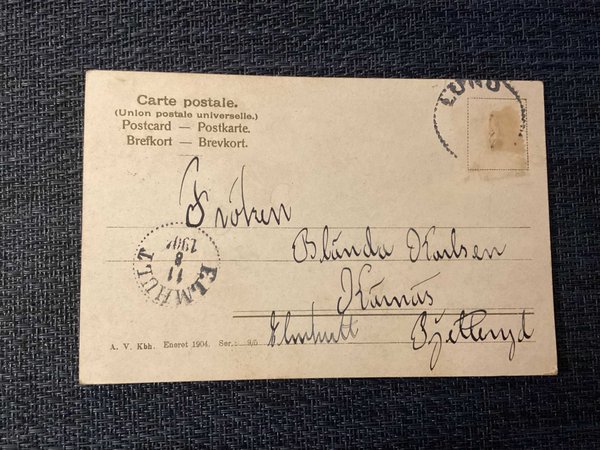 Carte postale.
(Union postale universelle.)
Postcard — Postkarte.
Brefkort — Brevkort.
LUND
Fröken
Blända Karlsen
Kårnäs
Elmhult Pjetteryd
ELMHULT
11
8
A. V. Kbh. Eneret 1904. Ser.: 9/5